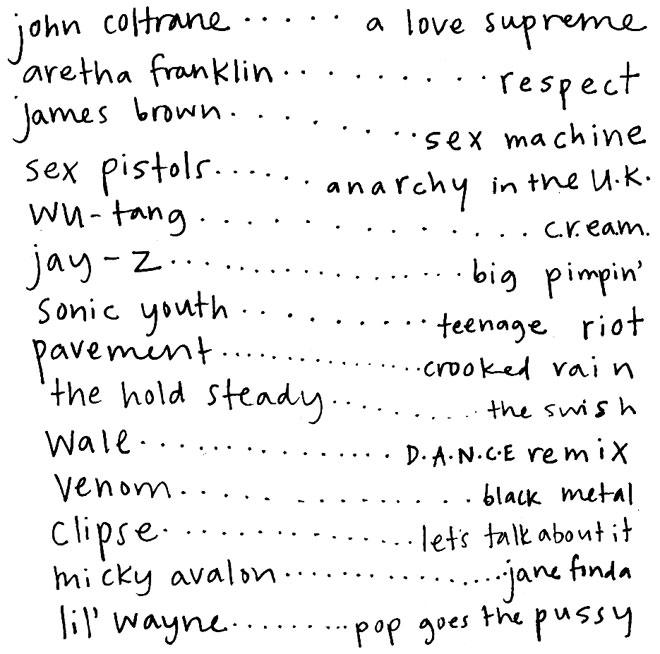 john coltrane ····· a love supreme
aretha franklin ········· respect
james brown ·········· sex machine
sex pistols ······ anarchy in the u.k.
wu-tang ············ c.r.e.a.m.
jay-z ················ big pimpin'
sonic youth ·········· teenage riot
pavement ················· crooked rain
the hold steady ·········· the swish
wale ·············· D.A.N.C.E remix
venom ············· black metal
clipse ··············· let's talk about it
micky avalon ················ jane fonda
lil' wayne ·········· pop goes the pussy